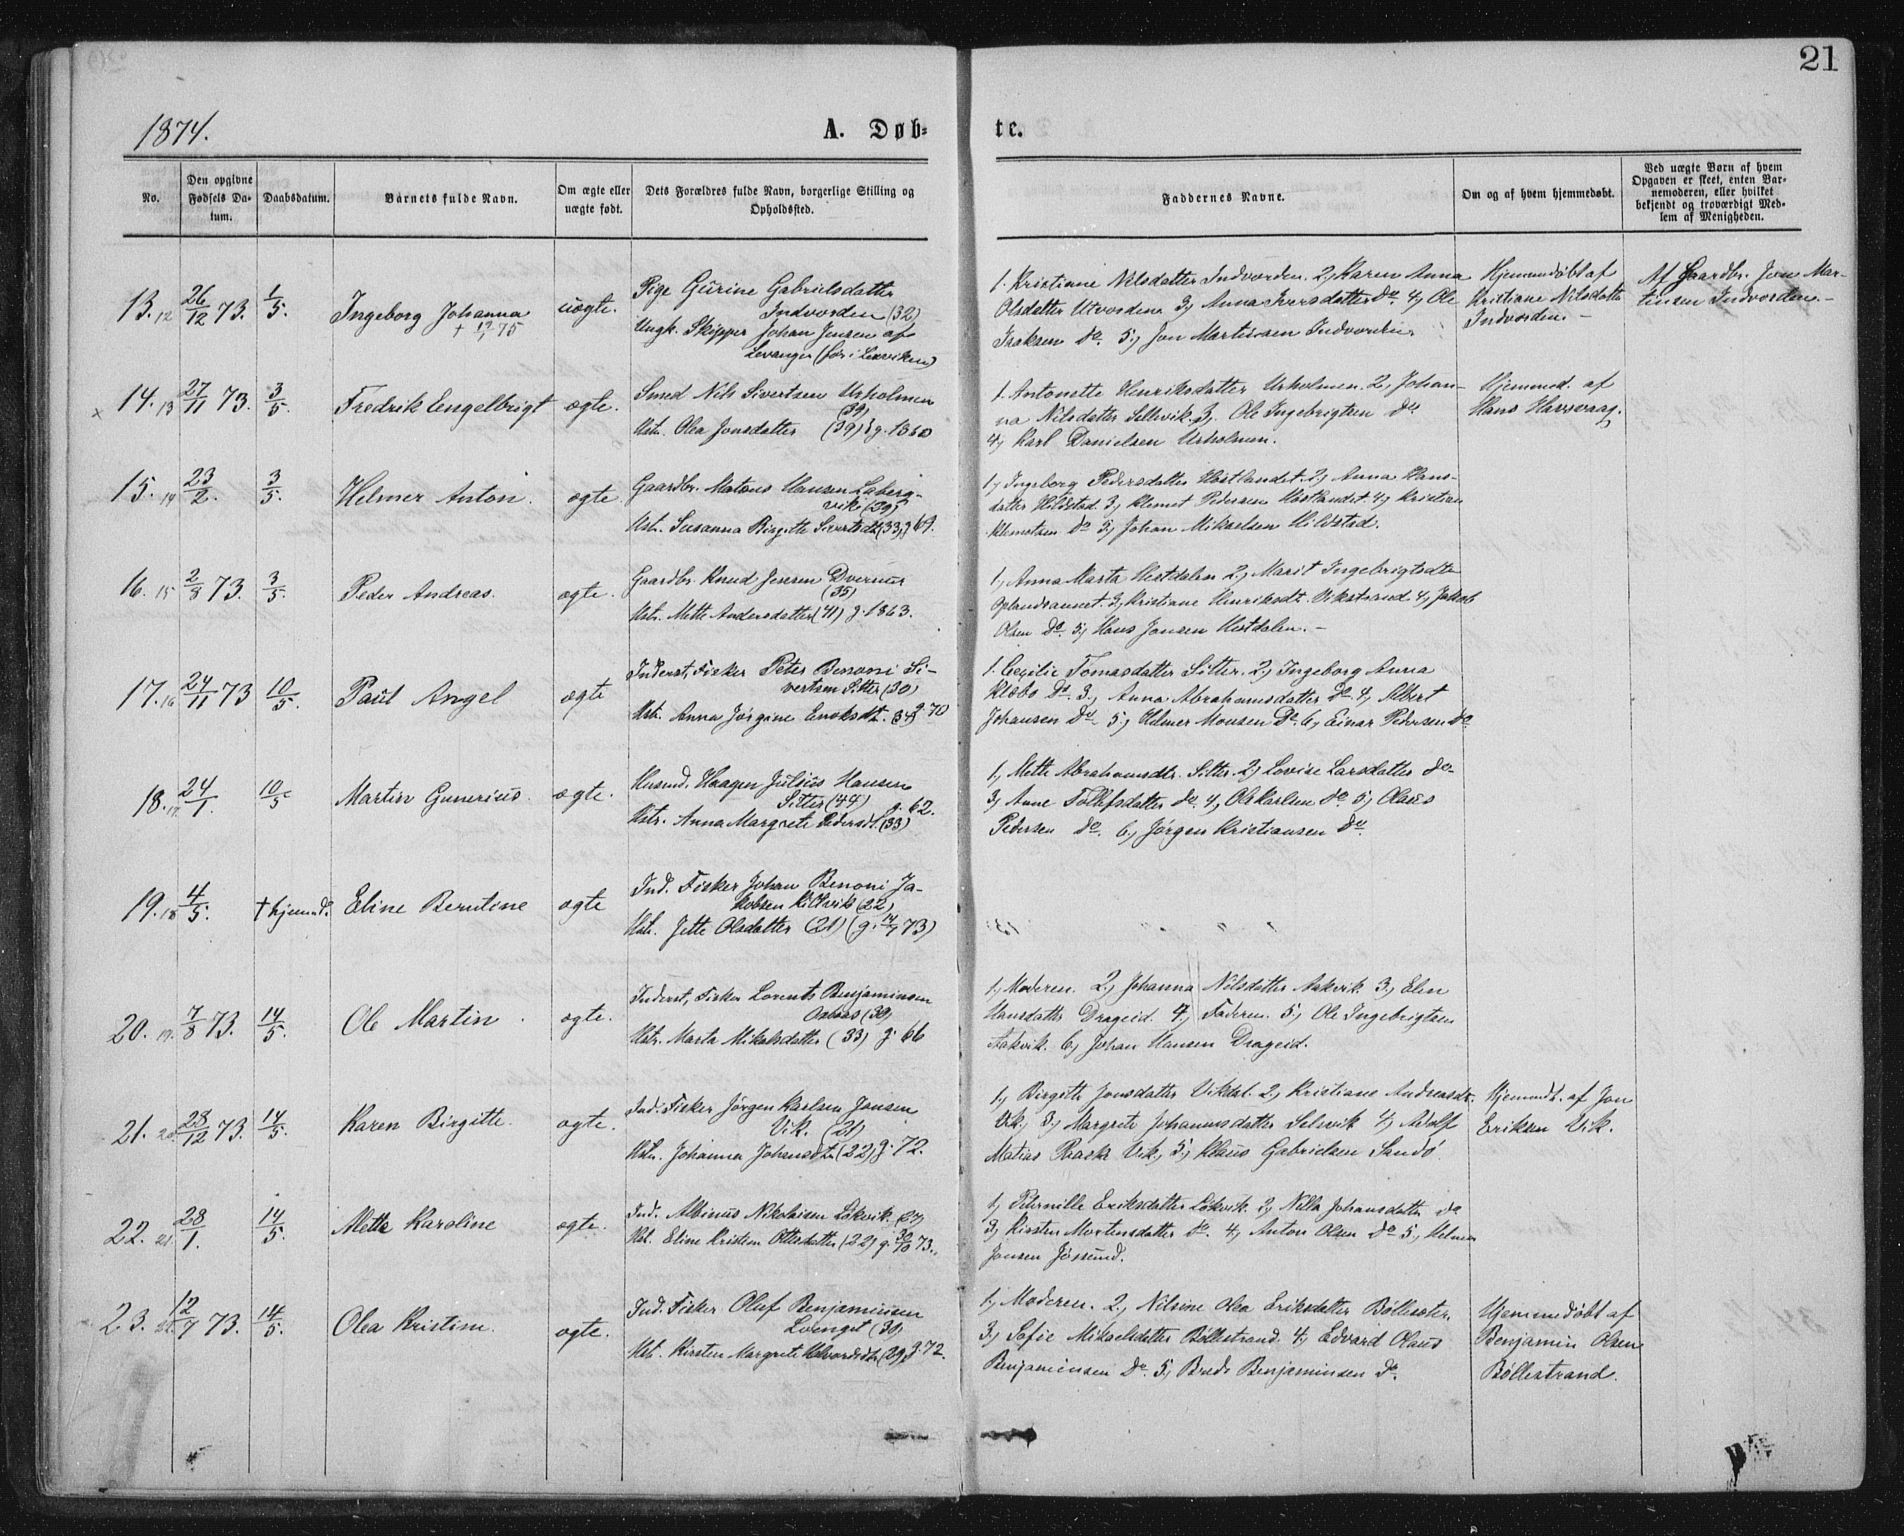 21
1874.
A. Døb-
te.
No.
Den opgivne Fødsels Da-tum.
Daabsdatum.
Barnets fulde Navn.
Om ægte eller uægte født.
Dets Forældres fulde Navn, borgerlige Stilling og Opholdssted.
Faddernes Navne.
Om og af hvem hjemmedøbt.
Ved uægte Børn af hvem Opgaven er skeet, enten Bar-nemoderen, eller hvilket bekjendt og troværdigt Med-lem af Menigheden.
13. 12 26/12 73. 1/5. Ingeborg Johanna uægte. Pige Gurine Gabrielsdatter
Indvorden (32)
Ungk. Skipper Johan Jensen af
Levanger (før i Lexviken)
1. Kristiane Nilsdatter Indvorden. 2, Karen Anna
Olsdatter Utvorden 3, Anna Iversdatter do. 4, Ole
Isaksen do. 5, Jon Martinsen Indvorden.
Hjemmedøbt af
Kristiane Nilsdatter
Indvorden.-
Af Gaardbr. Jon Mar-
tinsen Indvorden.-
x 14. 13 27/11 73. 3/5. Fredrik Engelbrigt ægte. Smed Nils Sivertsen Urholmen
(39)
Hstr. Olea Jonsdatter (39) g. 1860
1. Antonette Henriksdatter Urholmen. 2, Johan-
na Nilsdatter Sellevik. 3, Ole Ingebrigtsen do
4, Karl Danielsen Urholmen.
Hjemmed. af
Hans Havsvaag.
15. 14 23/2. 3/5. Helmer Anton. ægte. Gaardbr. Matøus Hansen Laberg-
vik (39)
Hst. Susanna Birgitte Sivertsdt. (33) g 69.
1, Ingeborg Pedersdatter Høstlandet. 2, Anna Hans-
datter Hildstad. 3, Klemet Pedersen Høstlandet 4, Kristian
Klemetsen do 5, Johan Mikaelsen Hildstad.
16. 15 2/8 73. 3/5. Peder Andreas. ægte. Gaardbr. Knud Jensen Dversnes
(35)
Hstr. Mette Andersdatter (41) g. 1863.
1, Anna Marta Hestdalen 2, Marit Ingebrigtsdtr
Oplandsaunet. 3, Kristiane Henriksdt. Vikstrand 4, Jakob
Olsen do. 5, Hans Jonsen Hestdalen.-
17. 16 24/11 73 10/5. Paul Angel ægte Inderst, Fisker Peter Benoni Si-
vertsen Sitter (30)
Hst. Anna Jørgine Enoksdt. 34) g. 70
1. Cecilie Tomasdatter Sitter. 2, Ingeborg Anna
Klæbo do. 3, Anna Abrahamsdatter do 4, Albert
Johansen do 5, Helmer Mousen do. 6, Einar Pedersen do
18. 17. 24/1. 10/5 Martin Gunerius. ægte. Husmd. Haagen Julius Hansen
Sitter (44) g. 62.
Hstr. Anna Margrete Pedersdt. (33)
1, Mette Abrahamsdtr. Sitter. 2, Lovise Larsdatter do-
3, Anne Tollefsdatter do. 4, Ole Karlsen do 5, Olaus
Pedersen do. 6, Jørgen Kristiansen do
19. 18 4/5. † hjemmd. Eline Berntine ægte Ind. Fisker Johan Benoni Ja-
kobsen Kiltvik (22)
Hst. Jette Olsdatter (21) (g. 14/7 73)
20. 19. 7/8 73. 14/5. Ole Martin. ægte. Inderst, Fisker Lorents Benjaminsen
Oxbas (39)
Hstr. Marta Mikalsdatter (33) g. 66
1, Moderen. 2, Johanna Nilsdatter Aakvik. 3, Elen
Hansdatter Drageid. 4, Faderen. 5, Ole Ingebrigtsen
Aakvik. 6, Johan Hansen Drageid.
21. 20. 28/12 73. 14/5. Karen Birgitte. ægte. Ind. Fisker Jørgen Karlsen Jonsen
Vik. (21)
Hstr. Johanna Johansdt. (22) g. 72.
1, Birgitte Jonsdatter Vikdal. 2, Kristiane Andreasdt.
Vik, 3, Margrete Johannsdatter Selsvik 4, Adolf
Matias Rask Vik, 5, Klaus Gabrielsen Sandø
Hjemmdt. af Jon
Eriksen Vik.
22. 21. 28/1. 14/5. Mette Karoline ægte. Ind. Albinus Nikolaisen Løkvik. (27)
Hst. Eline Kristine Ottesdatter (22) g. 30/10 73.
1, Pernille Eriksdatter Løkvik. 2, Nilla Johansdatter do
3, Kirsten Mortensdatter do. 4, Anton Olsen do 5, Helmer
Jonsen Jøssund.
23. 22. 12/7 73. 14/5. Olea Kristine. ægte. Ind. Fisker Oluf Benjaminsen
Lvenget (30)
Hst. Kirsten Margrete Halvordsdtr (29) g. 72.
1, Moderen. 2, Nilsine Olea Eriksdatter Bølleseter.
3, Sofie Mikaelsdatter Bøllestrand 4, Edvard Olaus
Benjaminsen do. 5, Brede Benjaminsen do.
Hjemmedøbt af
Benjamin Olsen
Bøllestrand.